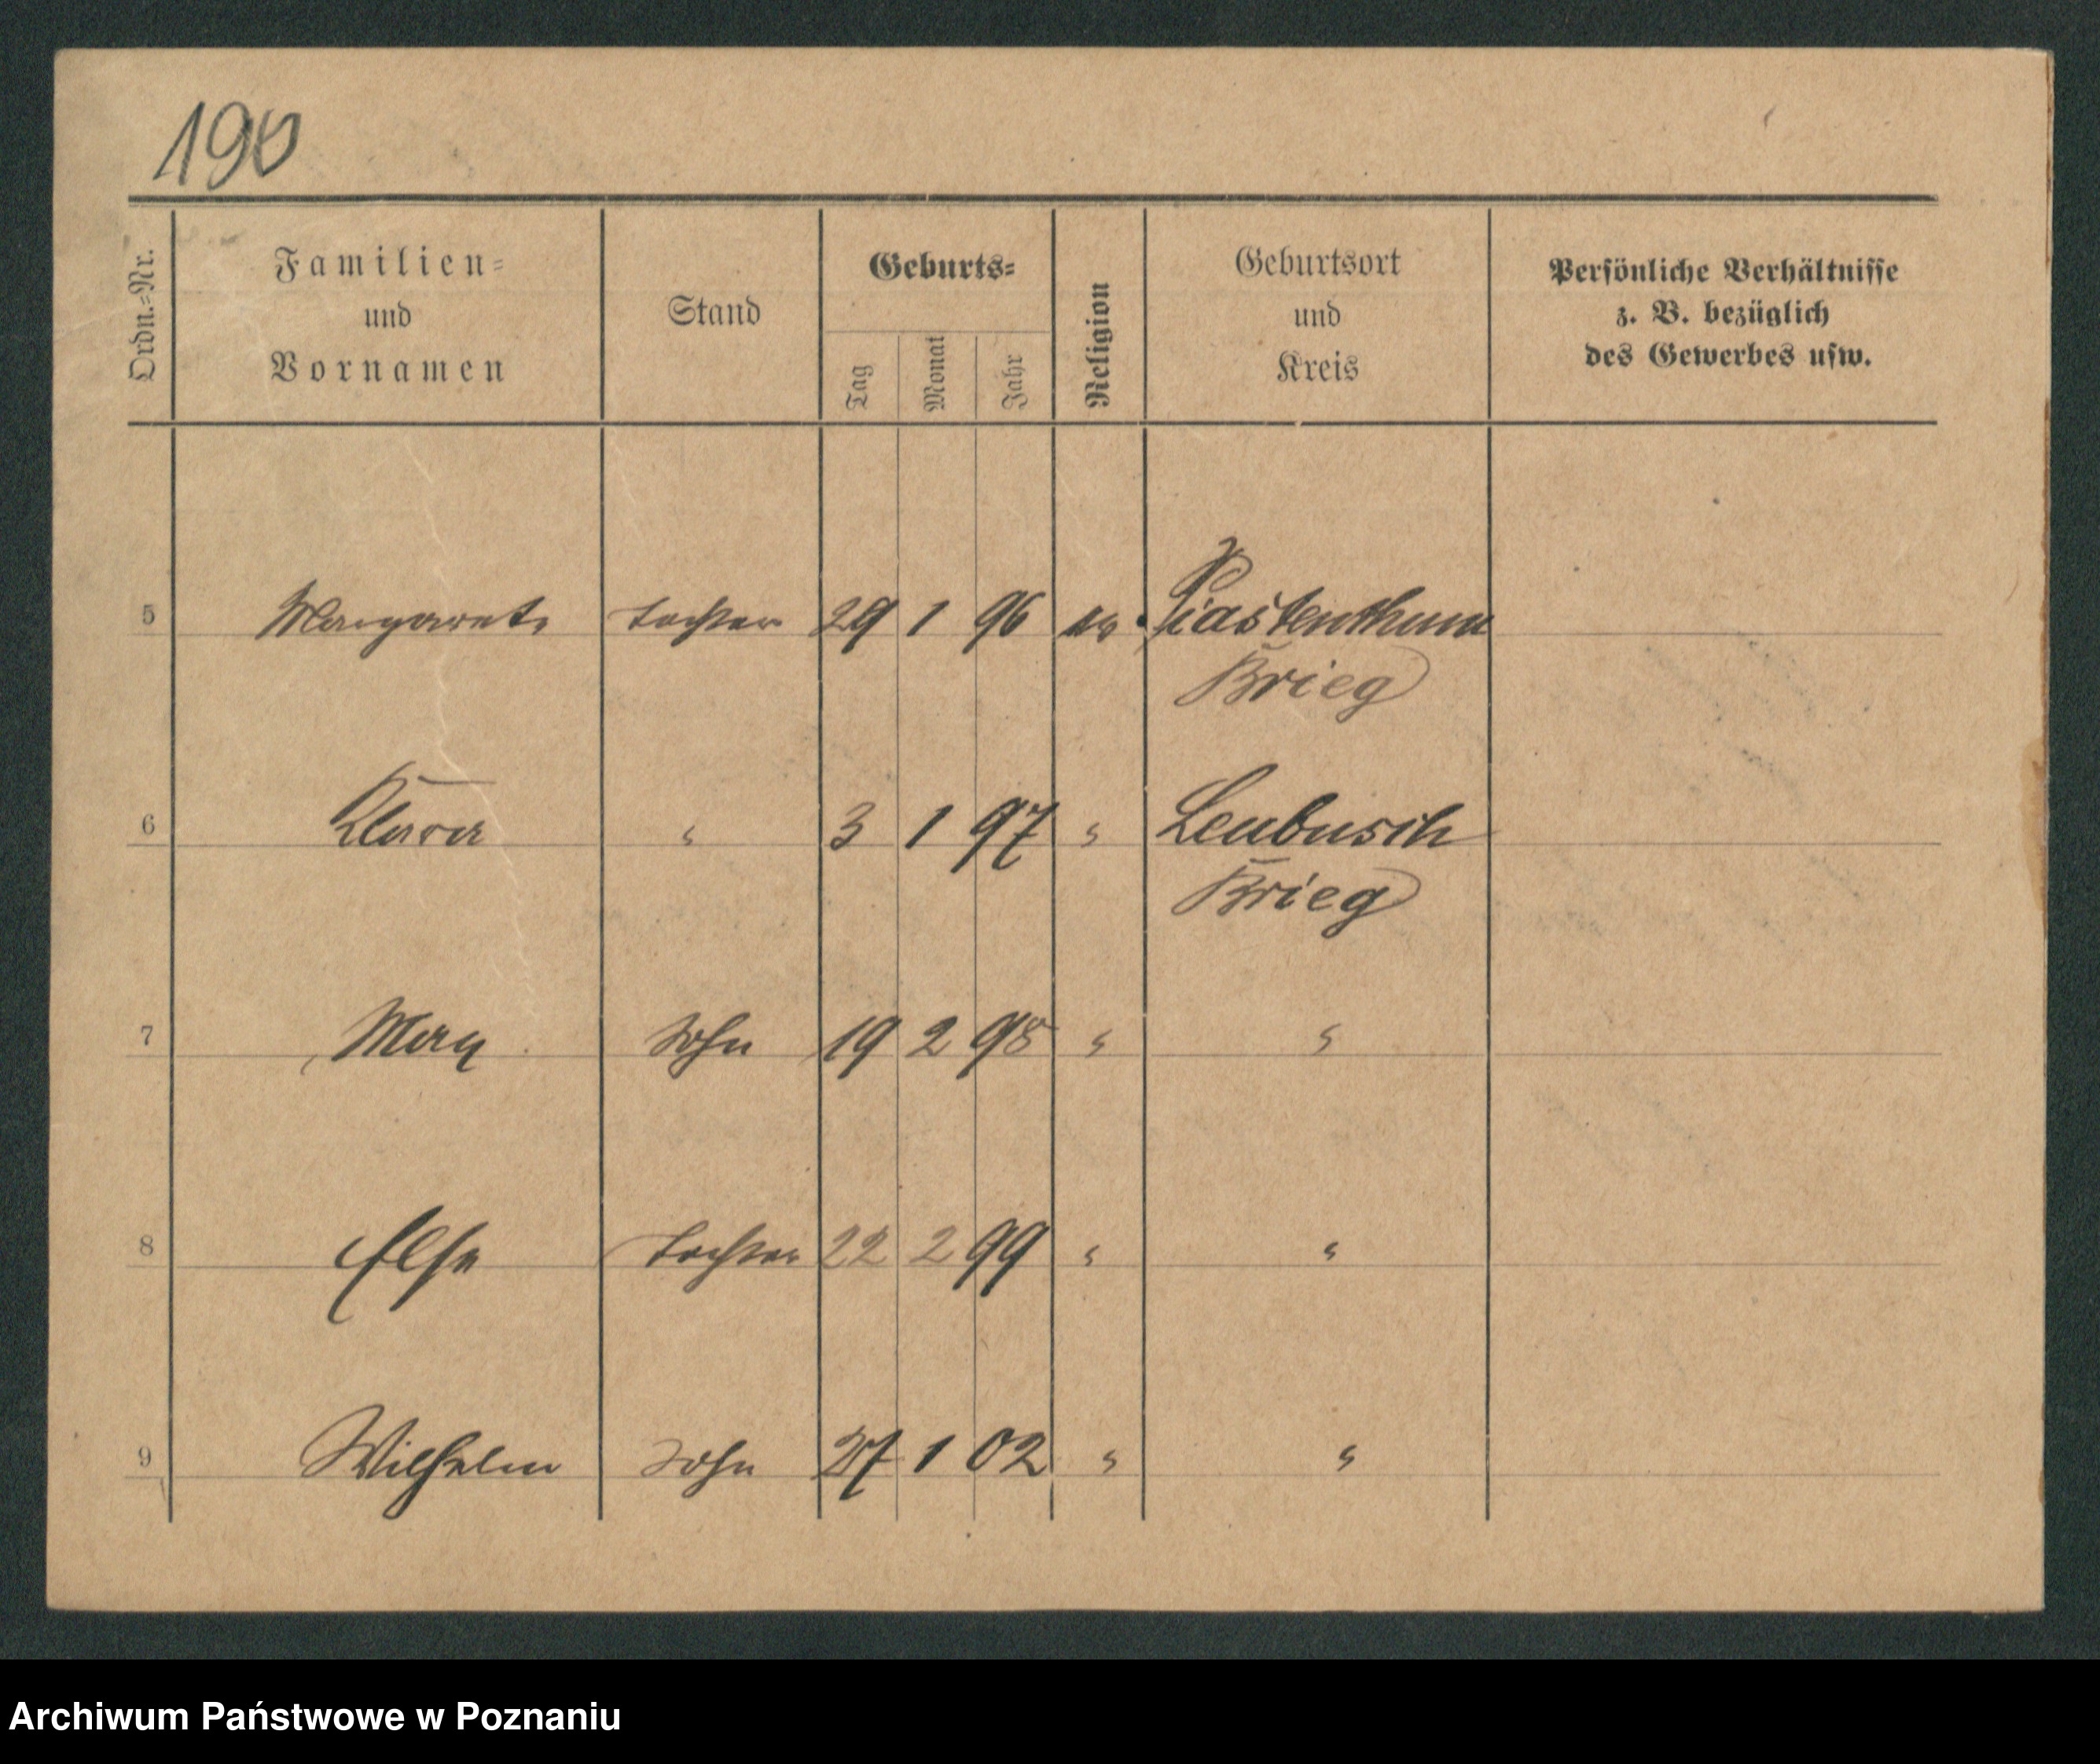 190
Ordn.-Nr. Familien- und Vornamen Stand Geburts- Tag Monat Jahr Religion Geburtsort und Kreis Persönliche Verhältnisse z. B. bezüglich des Gewerbes usw.
5 Margarete Tochter 29 1 96 ev. Piastenthum
Brieg
6 Klara " 3 1 97 " Leubusch
Brieg
7 Max Sohn 19 2 98 " "
8 Else Tochter 22 2 99 " "
9 Wilhelm Sohn 27 1 02 " "
Archiwum Państwowe w Poznaniu